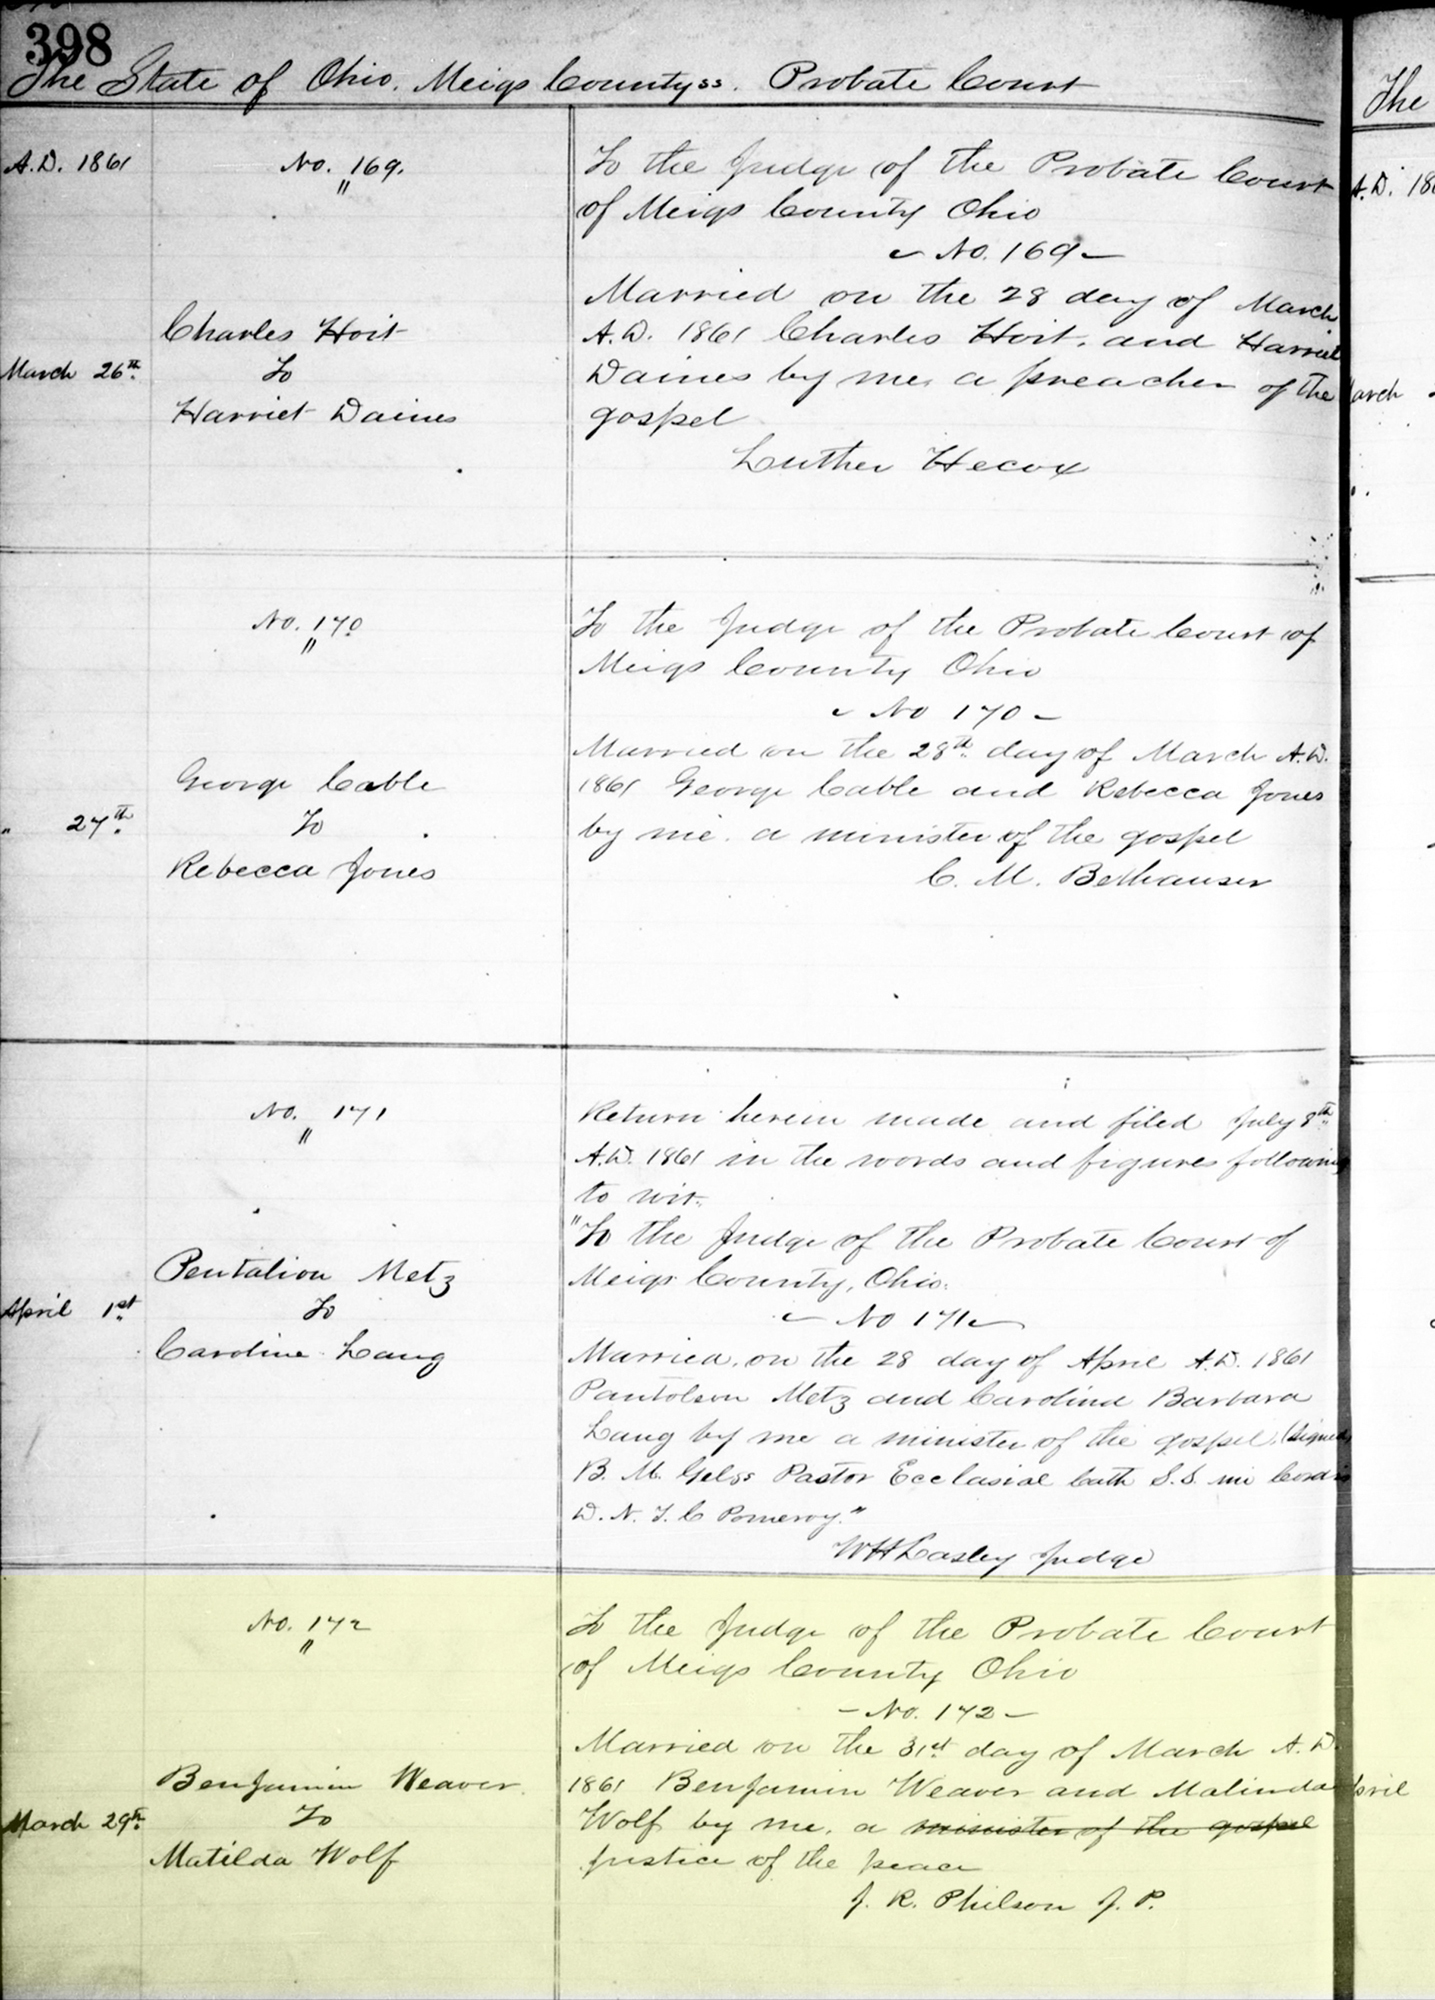 398
The State of Ohio. Meigs County ss. Probate Court
A.D. 1861
No. 169.
"
Charles Hoit
March 26th.
To
Harriet Daines
To the Judge of the Probate Court
of Meigs County Ohio
No. 169
Married on the 28 day of March
A.D. 1861 Charles Hoit. and Harriet
Daines by me, a preacher of the
gospel
Luther Hecox
No. 170
"
George Cable
" 27th.
To
Rebecca Jones
To the Judge of the Probate Court of
Meigs County Ohio
No 170
Married on the 28th. day of March A.D.
1861 George Cable and Rebecca Jones
by me. a minister of the gospel
C. M. Bethauser
No. 171
"
Pentalion Metz
April 1st.
To
Caroline Lang
Return herein made and filed July 8th.
A.D. 1861 in the words and figures following
to wit.
"To the Judge of the Probate Court of
Meigs County, Ohio.
No 171
Married, on the 28 day of April A.D. 1861
Pantolson Metz and Carolina Barbara
Lang by me a minister of the gospel, (Signed)
B. M. Pastor Ecclasial Cath S.S.
D. N. J. C Pomeroy."
W H Lasley Judge
No. 172
"
Benjamin Weaver
March 29th.
To
Matilda Wolf
To the Judge of the Probate Court
of Meigs County Ohio
- No. 172 -
Married on the 31st. day of March A.D.
1861 Benjamin Weaver and Malinda
Wolf by me, a minister of the gospel
justice of the peace
J. R. Philson J. P.
The
A.D. 186
arch
pril